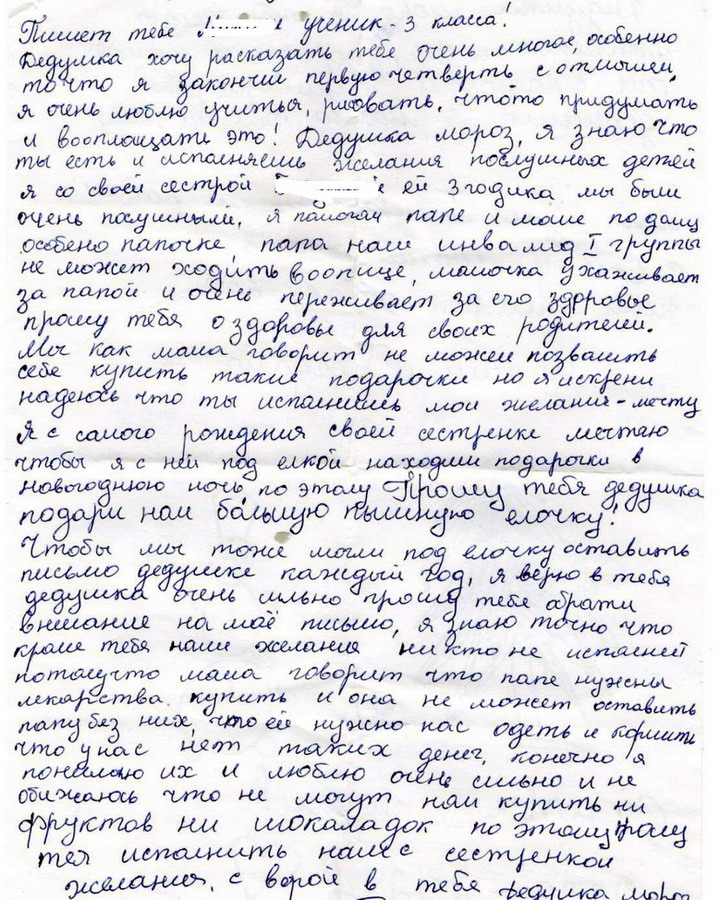 Пишет тебе ученик - 3 класса!
Дедушка хочу расказать тебе очень многое, особенно
то что я закончил первую четверть с отличием,
я очень люблю учиться, рисовать, что то придумать
и воплощать это! Дедушка мороз, я знаю что
ты есть и исполняешь желания послушных детей
я со своей сестрой ей 3 годика мы были
очень послушными, я помогаю папе и маме по дому
особено папочке, папа наш инвалид I группы
не может ходить вообще, мамочка ухаживает
за папой и очень переживает за его здоровье
прошу тебя о здоровье для своих родителей.
Мы как мама говорит не можем позволить
себе купить такие подарочки но я искрени
надеюсь что ты исполнишь мои желания - мечту
Я с самого рождения своей сестренки мечтаю
чтобы я с ней под елкой находили подарочки в
новогоднюю ночь, по этому Прошу тебя дедушка
подари нам большую пышную елочку!
Чтобы мы тоже могли под елочку оставить
письмо дедушке каждый год, я верю в тебя
дедушка очень сильно прошу тебе обрати
внимание на моё письмо, я знаю точно что
кроме тебя наши желания ни кто не исполнит
потомучто мама говорит что папе нужны
лекарства купить и она не может оставить
папу без них, что ей нужно нас одеть и кормить
что у нас нет таких денег, конечно я
понимаю их и люблю очень сильно и не
обижаюсь что не могут нам купить ни
фруктов ни шокаладок по этому прошу
тея исполнить наши с сестренкой
желания, с верой в тебя дедушка мороз